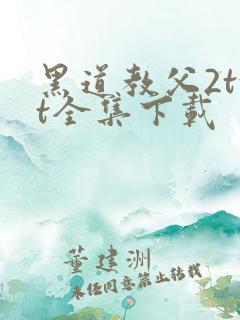 黑道教父2tx
t全集下载
董建洲
未经同意禁止转载